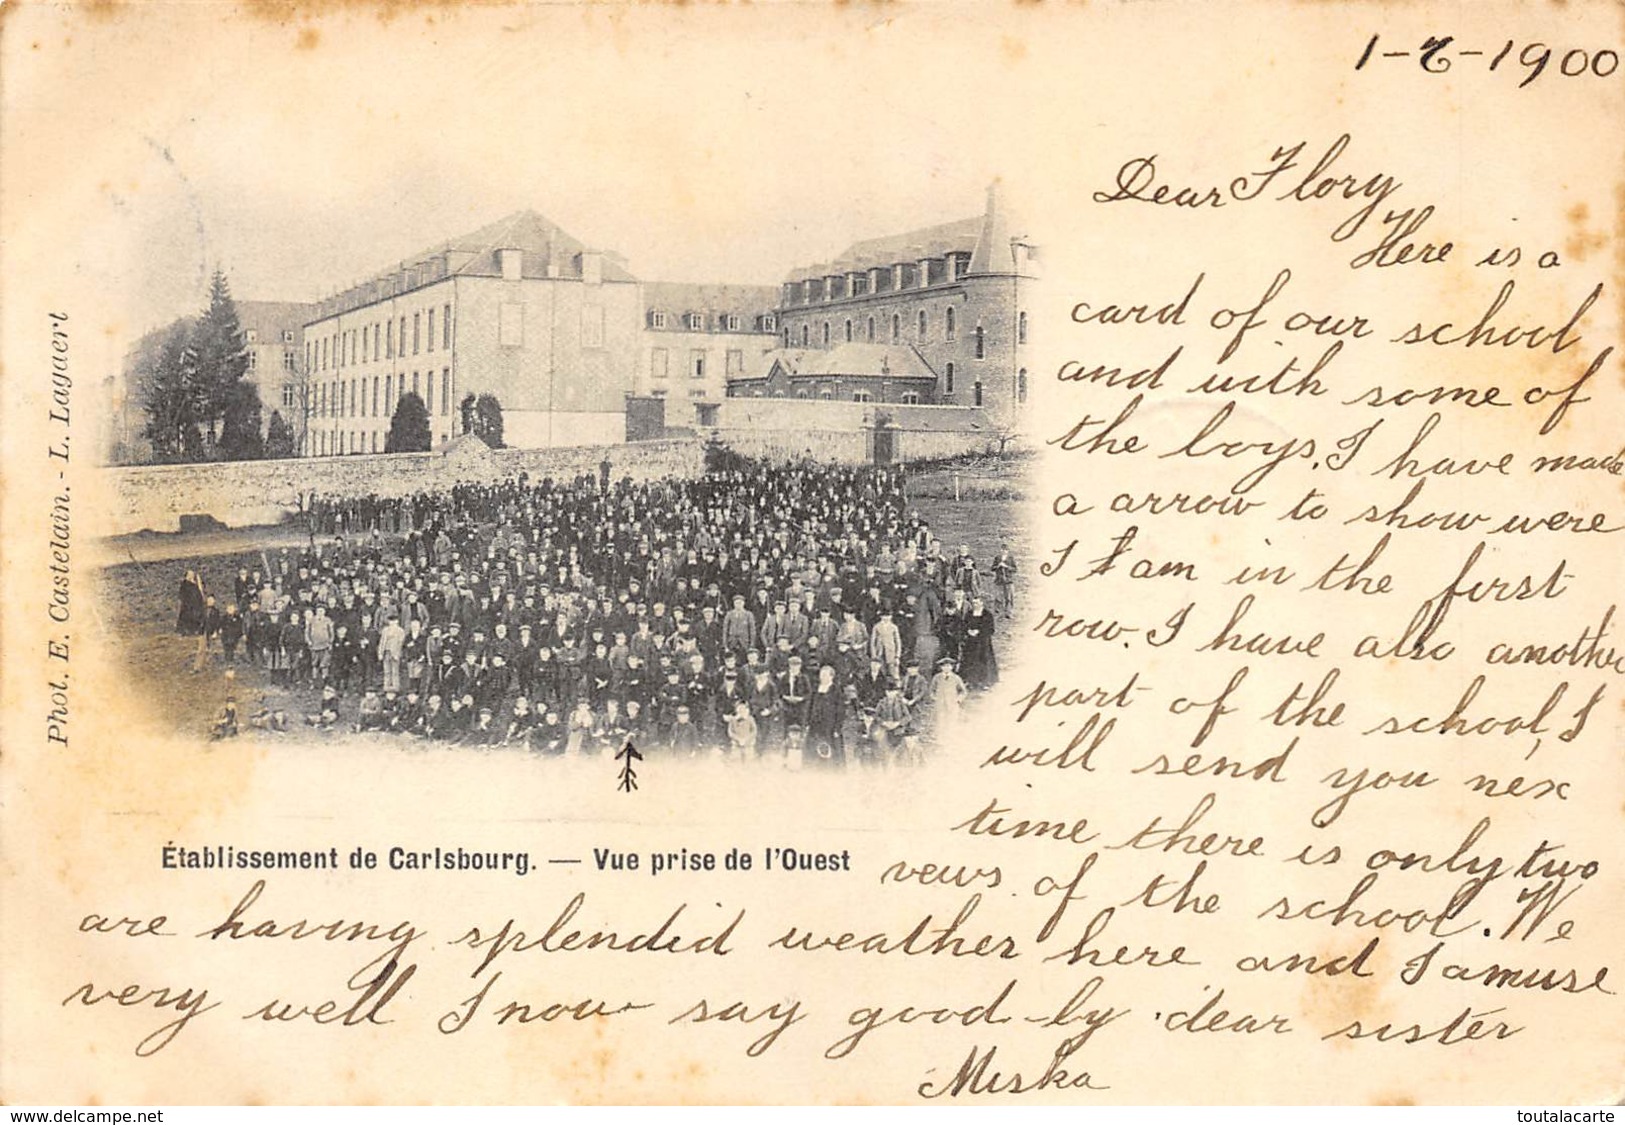 1-7-1900
Dear Flory
Here is a
card of our school
and with some of
the boys. I have made
a arrow to show were
I am in the first
row. I have also another
part of the school, I
will send you nex
time there is only two
vews of the school. We
are having splendid weather here and I amuse
very well I now say good-by dear sister
Miska
Établissement de Carlsbourg. — Vue prise de l'Ouest
Phot. E. Castelain. - L. Lagaert
www.delcampe.net
toutalacarte